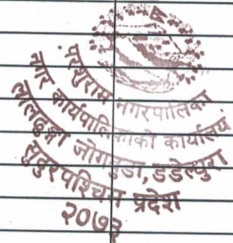 परशुराम नगरपालिका
नगर कार्यपालिकाको कार्यालय
जोगबुडा, डडेल्धुरा
सुदुरपश्चिम प्रदेश
२०७३